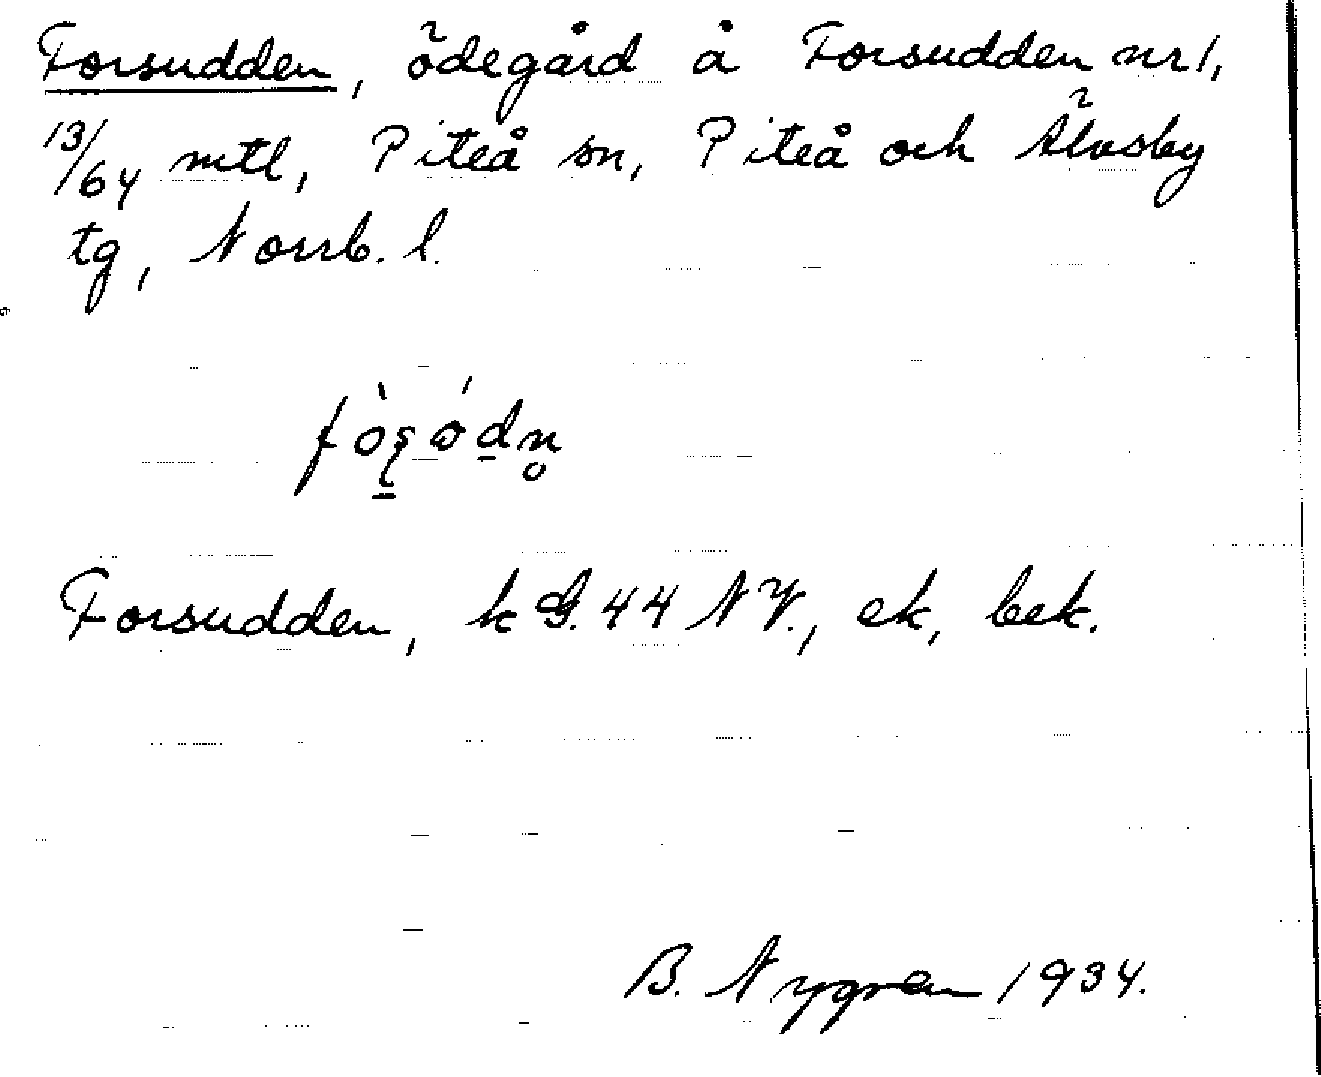 Forsudden, ödegård å Forsudden nr 1,
13/64 mtl, Piteå sn, Piteå och Älvsby
tg, Norrb. l.
Forsudden, k G. 44 N V., ek, bek.
B. Nygren 1934.